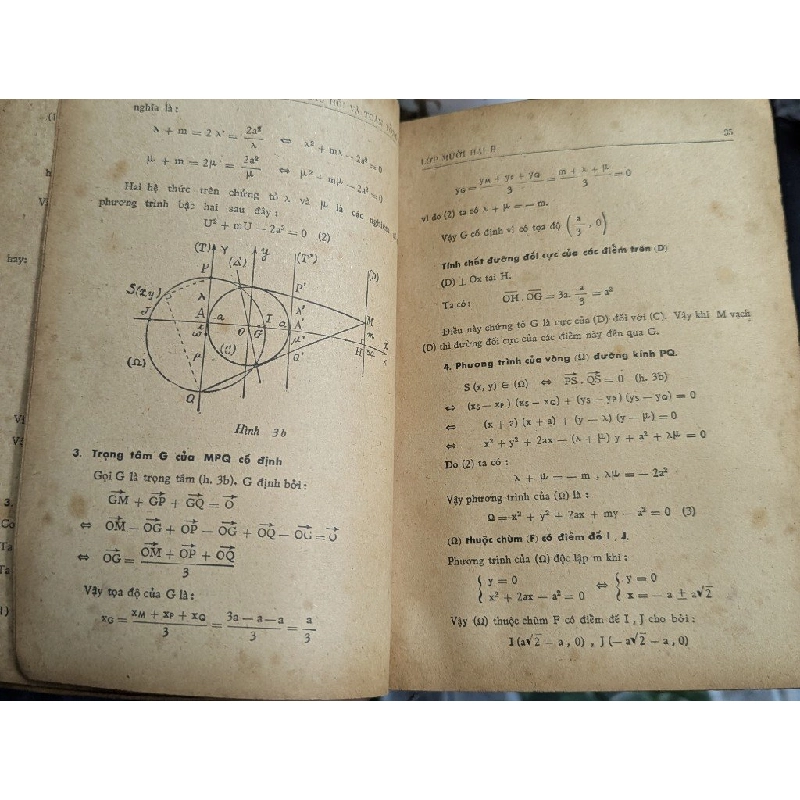 nghĩa là :
λ + m = 2 λ' = 2a²/λ ⇔ λ² + mλ − 2a² = 0
μ + m = 2μ' = 2a²/μ ⇔ μ² + mμ − 2a² = 0
Hai hệ thức trên chứng tỏ λ và μ là các nghiệm
phương trình bậc hai sau đây :
U² + mU − 2a² = 0 (2)
(T) Y y (T') (D)
(Δ)
P P'
S(x,y) λ λ'
J A a O G I a A' M
ω H x
(Ω) μ (C) μ'
Q' Q
Hình 3b
3. Trọng tâm G của MPQ cố định
Gọi G là trọng tâm (h. 3b). G định bởi :
GM + GP + GQ = O
⇔ OM − OG + OP − OG + OQ − OG = O
⇔ OG = (OM + OP + OQ)/3
Vậy tọa độ của G là :
xG = (xM + xP + xQ)/3 = (3a − a − a)/3 = a/3
LỚP MƯỜI HAI B 35
yG = (yM + yP + yQ)/3 = (m + λ + μ)/3 = 0
vì do (2) ta có λ + μ = − m.
Vậy G cố định vì có tọa độ (a/3 , 0)
Tính chất đường đối cực của các điểm trên (D)
(D) ⊥ Ox tại H.
Ta có : OH . OG = 3a. a/3 = a²
Điều này chứng tỏ G là cực của (D) đối với (C). Vậy khi M vạch
(D) thì đường đối cực của các điểm này đều qua G.
4. Phương trình của vòng (Ω) đường kính PQ.
S (x, y) ∈ (Ω) ⇔ PS . QS = 0 (h. 3b)
⇔ (xS − xP) (xS − xQ) + (yS − yP) (yS − yQ) = 0
⇔ (x + a) (x + a) + (y − λ) (y − μ) = 0
⇔ x² + y² + 2ax − (λ + μ) y + a² + λμ = 0
Do (2) ta có :
λ + μ = − m , λμ = − 2a²
Vậy phương trình của (Ω) là :
Ω = x² + y² + 2ax + my − a² = 0 (3)
(Ω) thuộc chùm (F) có điểm đế I , J.
Phương trình của (Ω) độc lập m khi :
{ y = 0 ⇔ { y = 0
{ x² + 2ax − a² = 0 { x = − a ± a√2
Vậy (Ω) thuộc chùm F có điểm đế I , J cho bởi :
I (a√2 − a , 0) , J (− a√2 − a , 0)